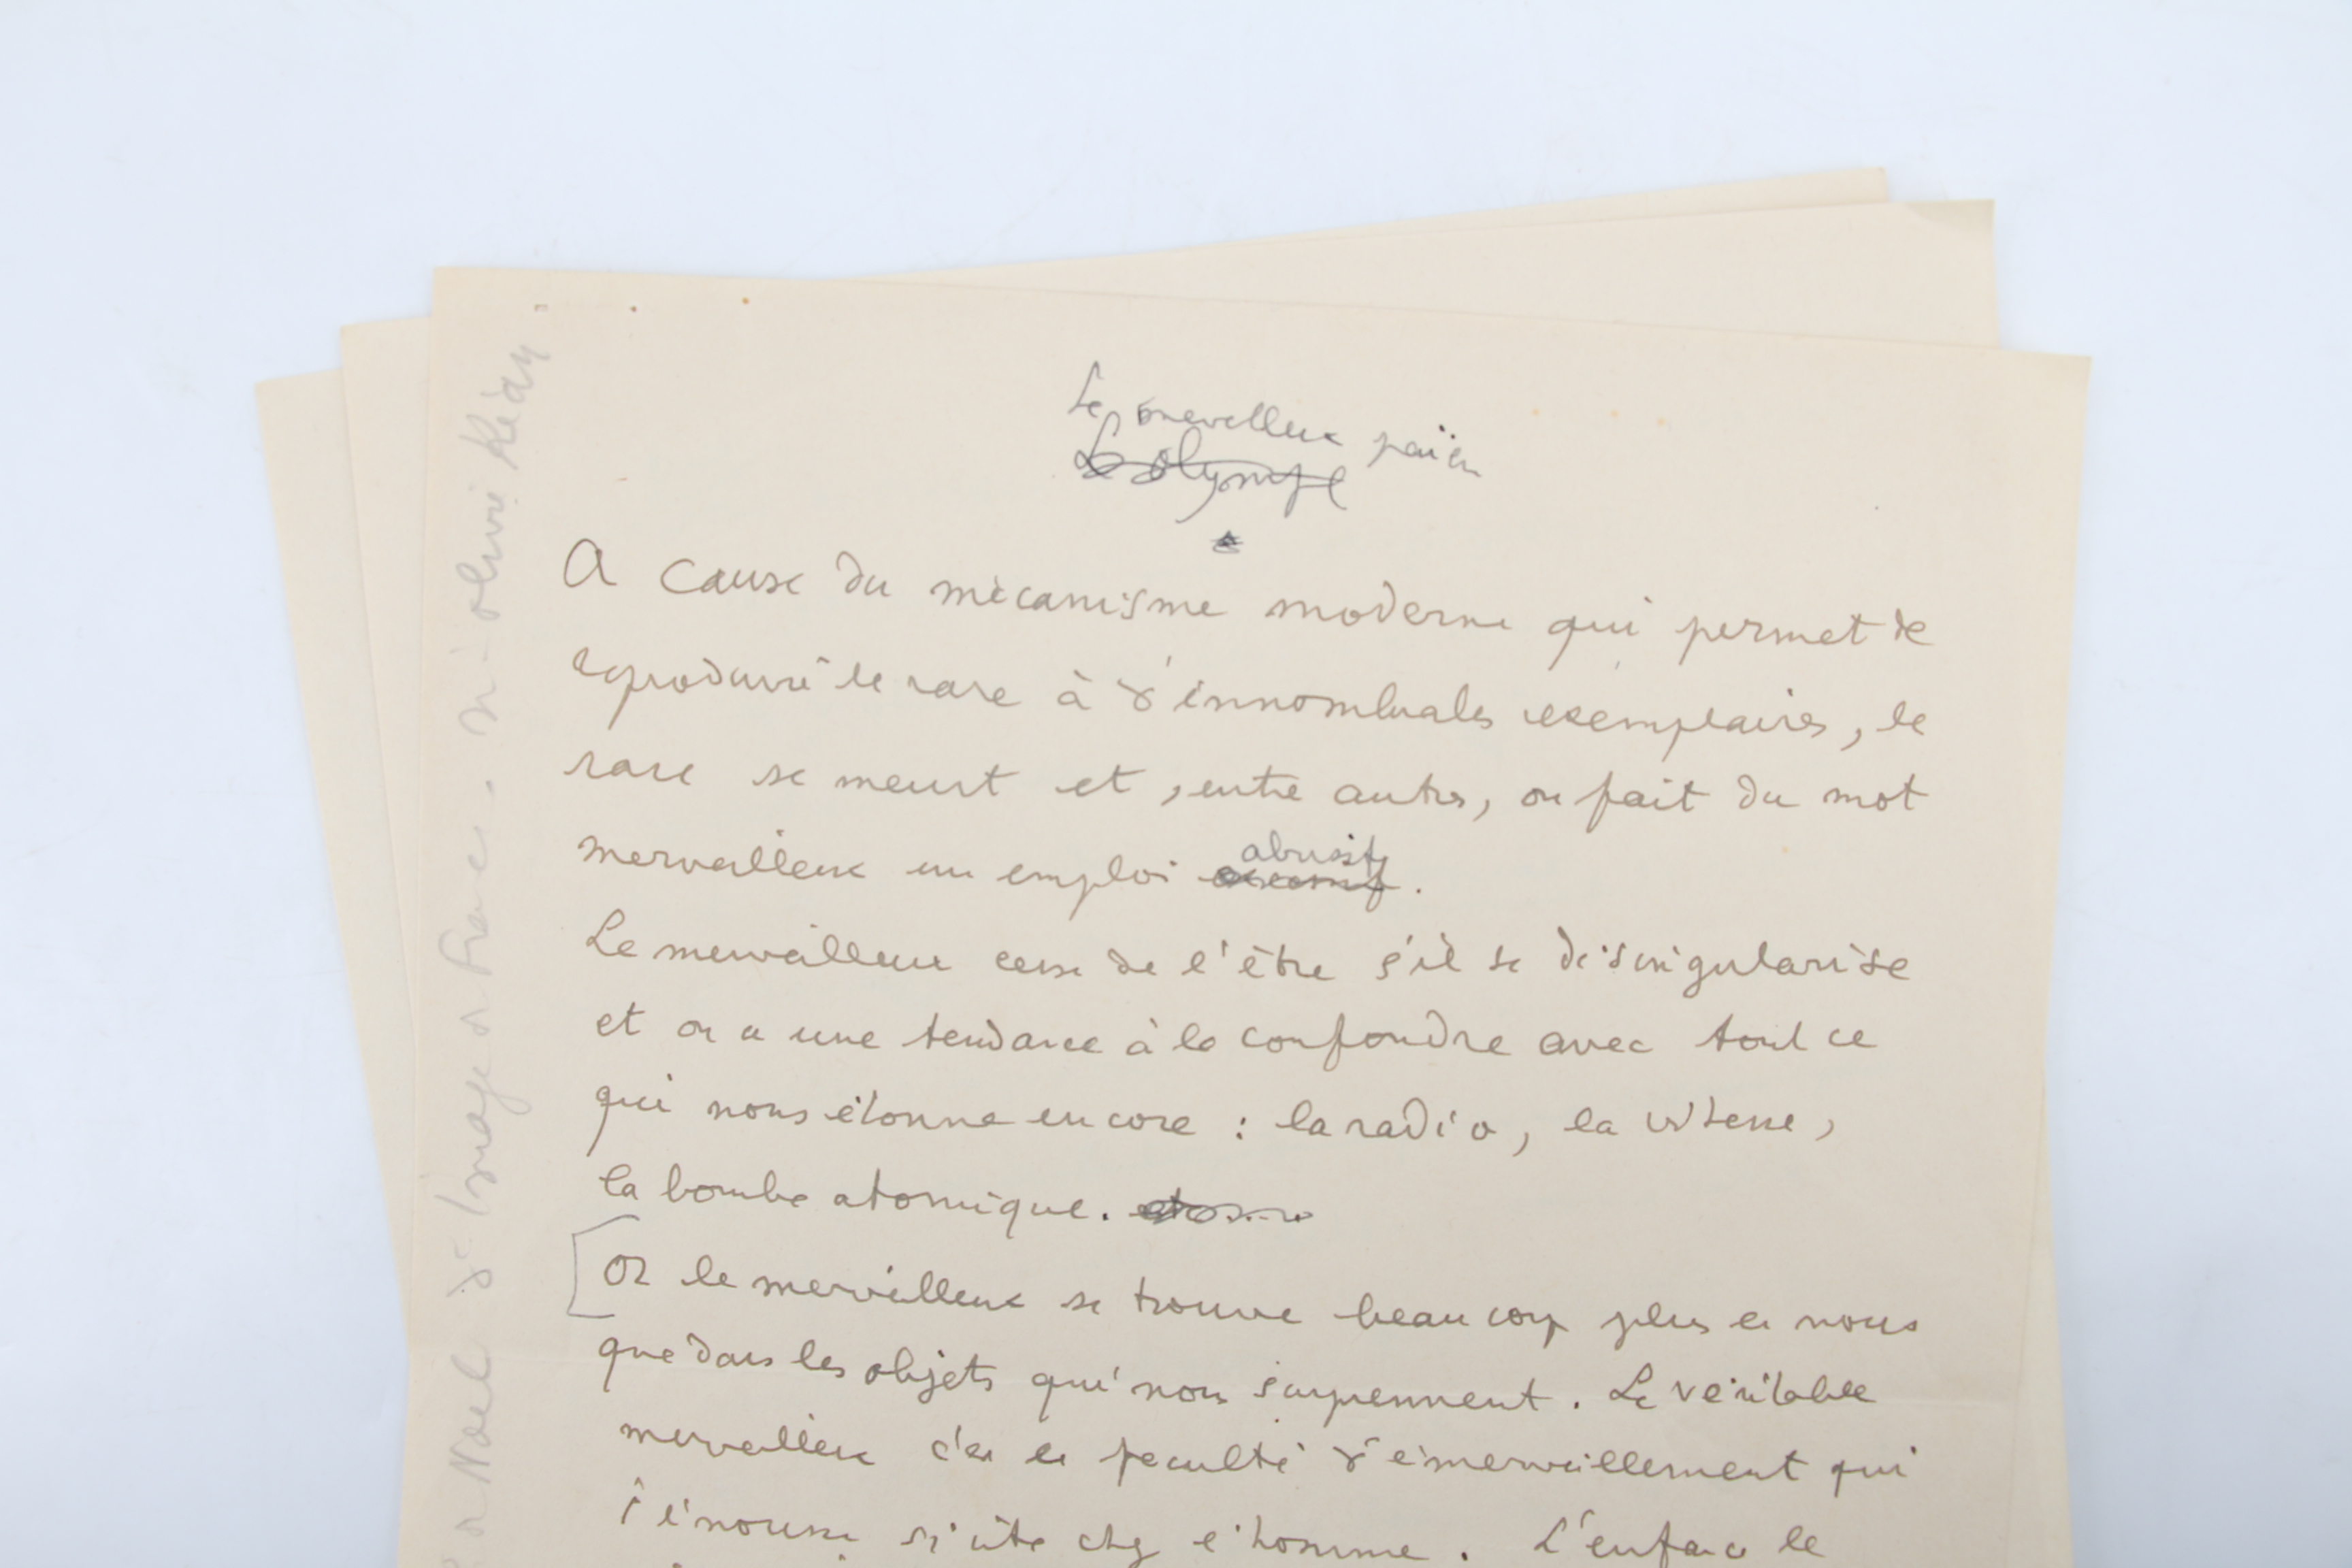 Le merveilleux païen
L'olympe
A cause du mécanisme moderne qui permet de
reproduire le rare à d'innombrables exemplaires, le
rare se meurt et, entre autres, on fait du mot
merveilleux un emploi abusif.
Le merveilleux cesse de l'être s'il se désingularise
et on a une tendance à le confondre avec tout ce
qui nous étonne encore : la radio, la vitesse,
la bombe atomique.
Or le merveilleux se trouve beaucoup plus en nous
que dans les objets qui nous surprennent. Le véritable
merveilleux c'est la faculté d'émerveillement qui
s'émousse si vite chez l'homme. L'enfance le
Noël d'Images de France.